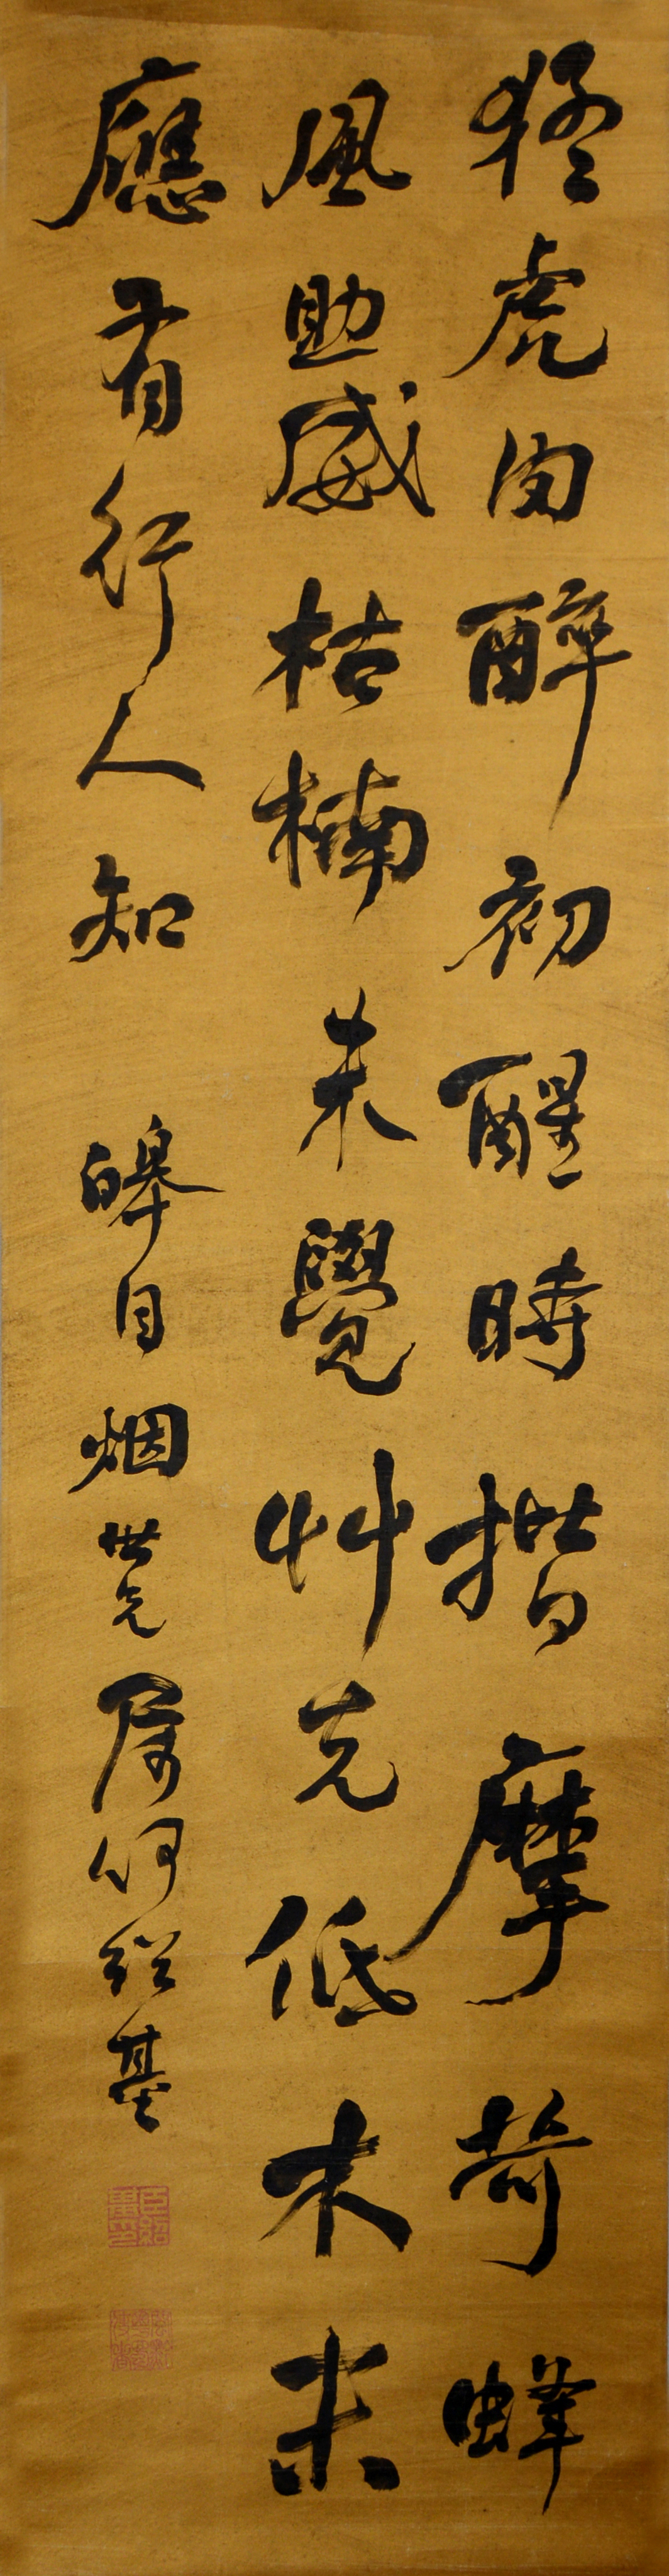 猛虎肉醉初醒時揩摩苛蛘
風助威枯楠未覺艸先低木末
應有行人知 皞目烟世兄屬何紹基